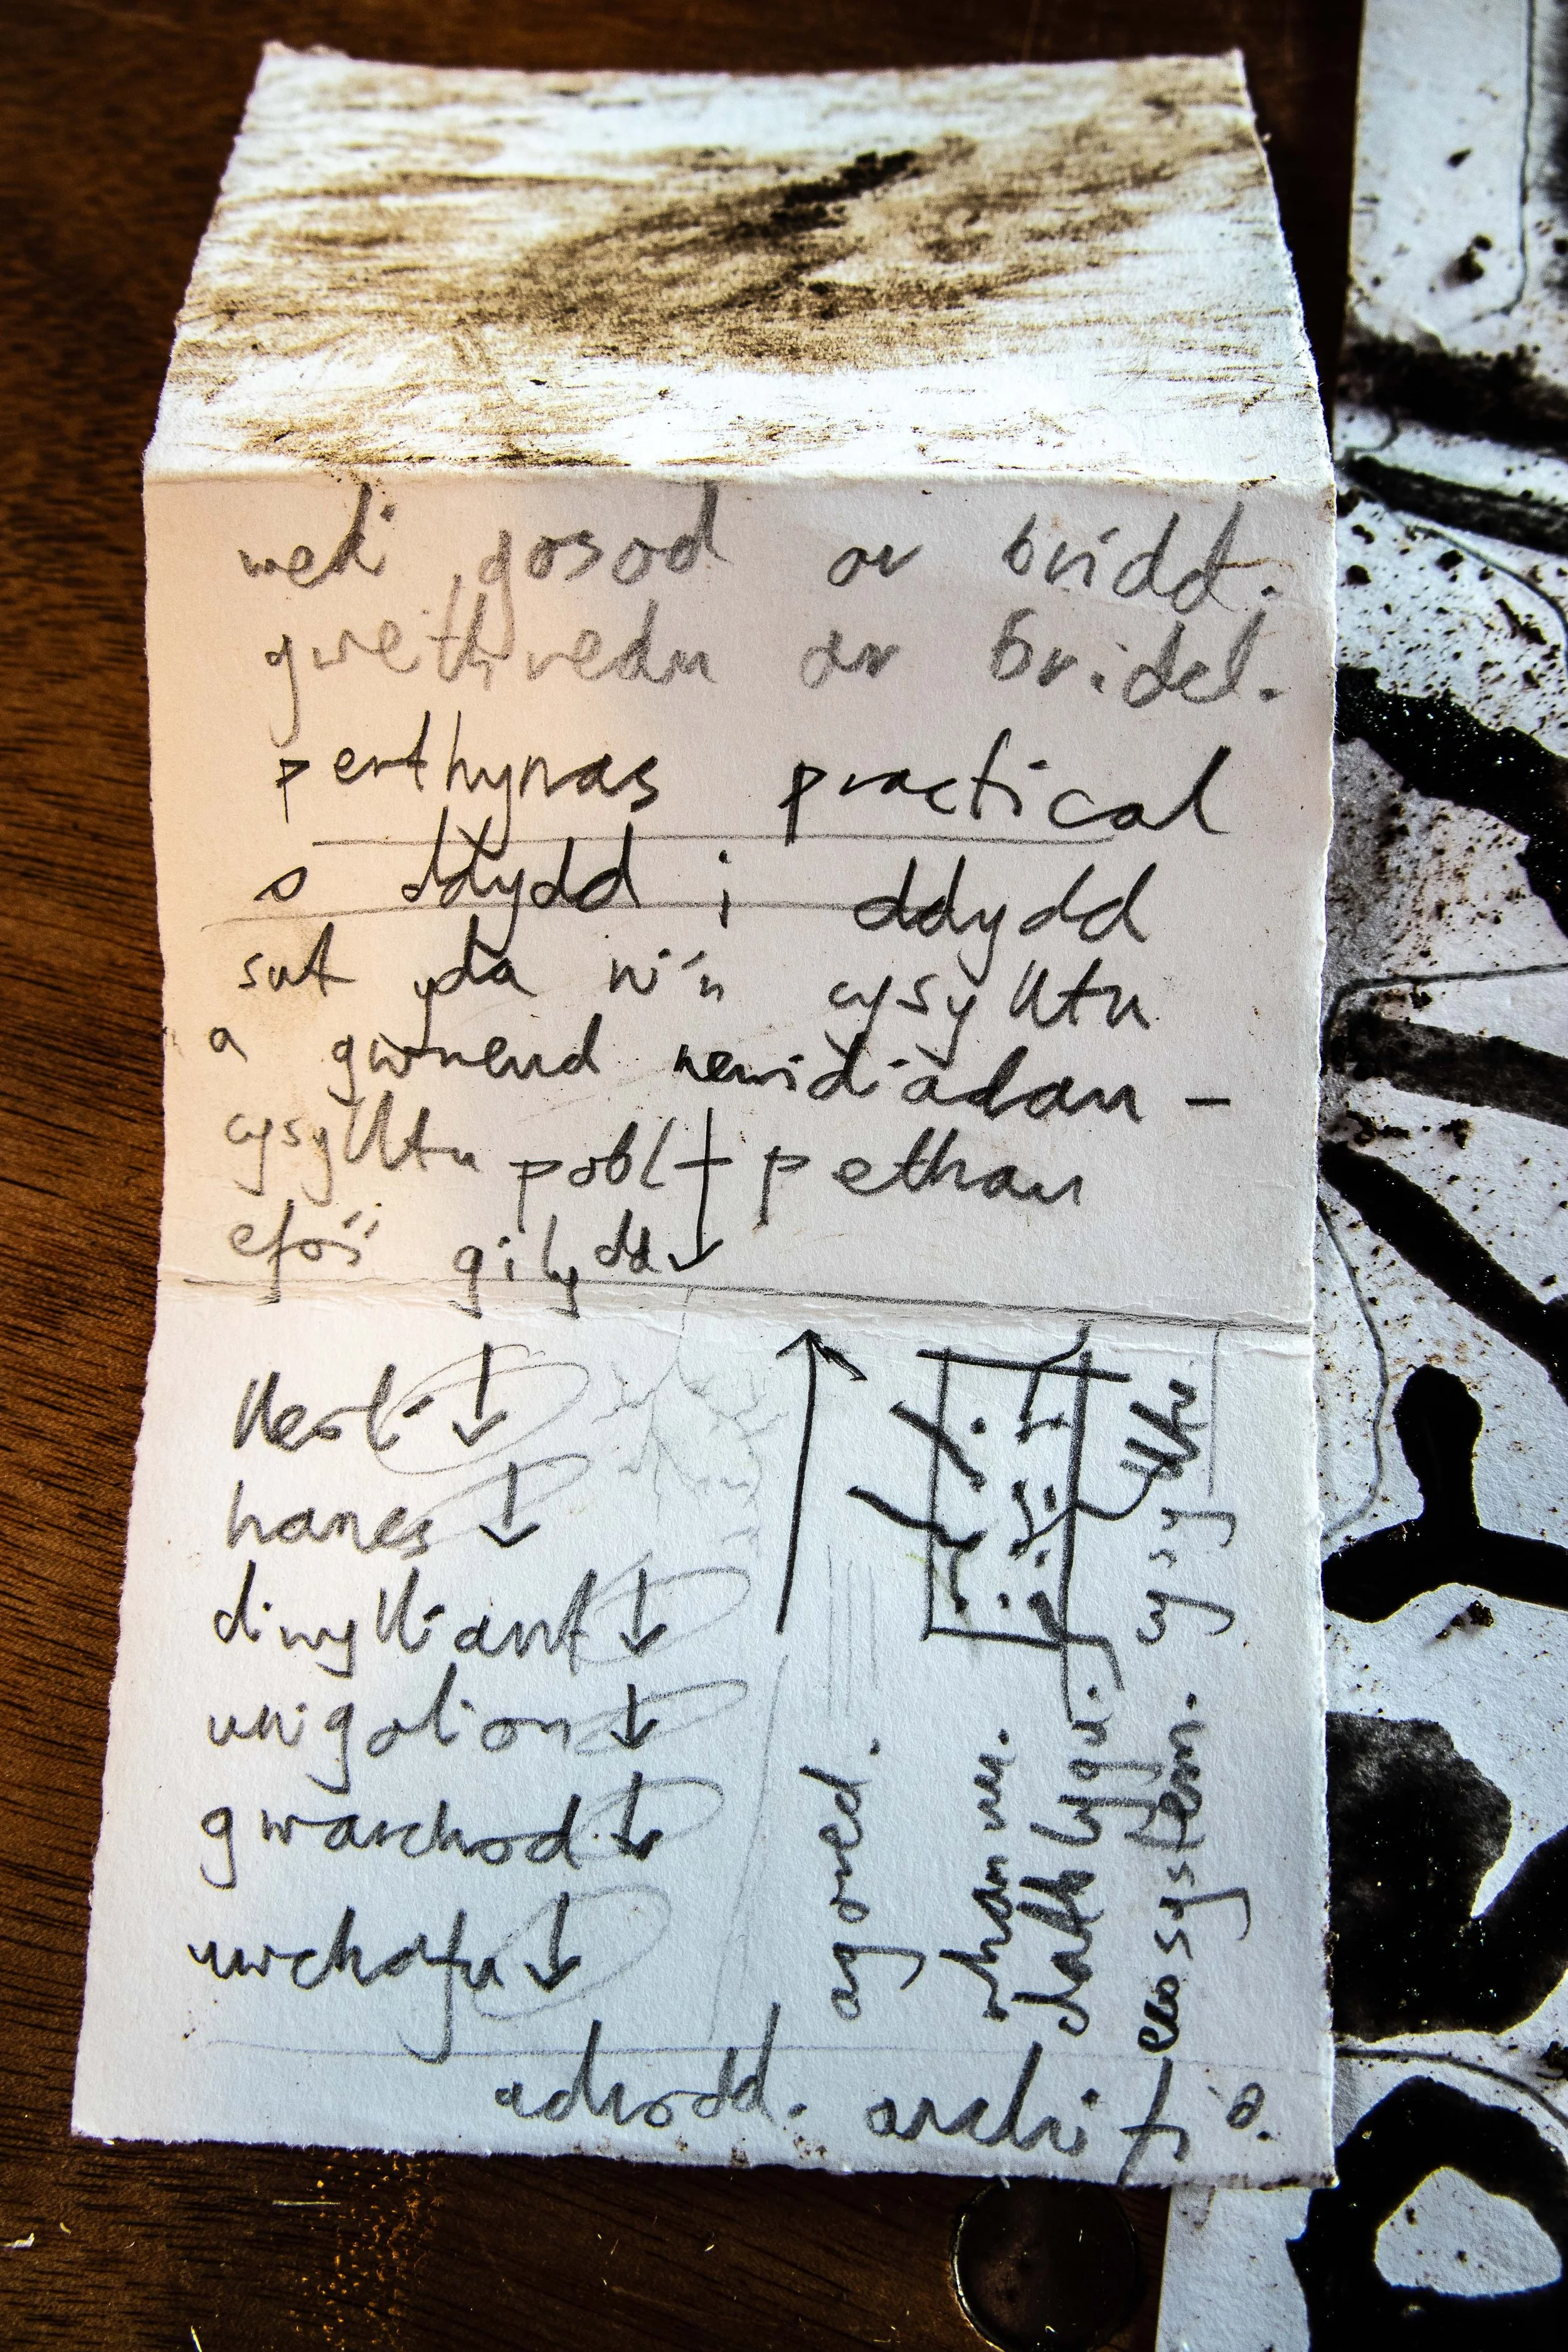 wedi gosod ar bridd.
gweithredu ar bridd.
perthynas practical
o ddydd i ddydd
sut yda ni'n cysylltu
a gwneud newidiadau -
cysylltu pobl + pethau
efo'i gilydd
lleoli
hanes
diwylliant
unigolion
gwarchod
uwchafu
adrodd. archifo.
agored.
rhannu.
ecosystem.
cysylltu.